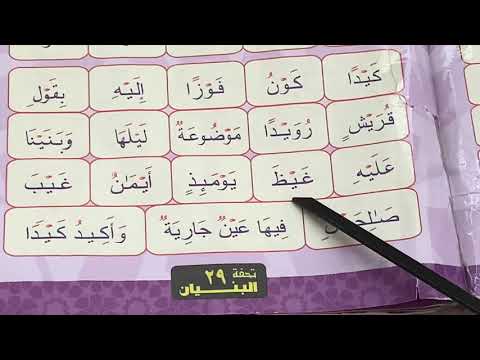 كَيْدًا كَوْنُ فَوْزًا إِلَيْهِ بِقَوْلِ
قُرَيْشٍ رُوَيْدًا مَوْضُوعَةٌ لَيْلَهَا وَبَنَيْنَا
عَلَيْهِ غَيْظَ يَوْمَئِذٍ أَيْمَٰنٌ غَيْبَ
فِيهَا عَيْنٌ جَارِيَةٌ وَأَكِيدُ كَيْدًا
تحفة ٢٩
البنيان